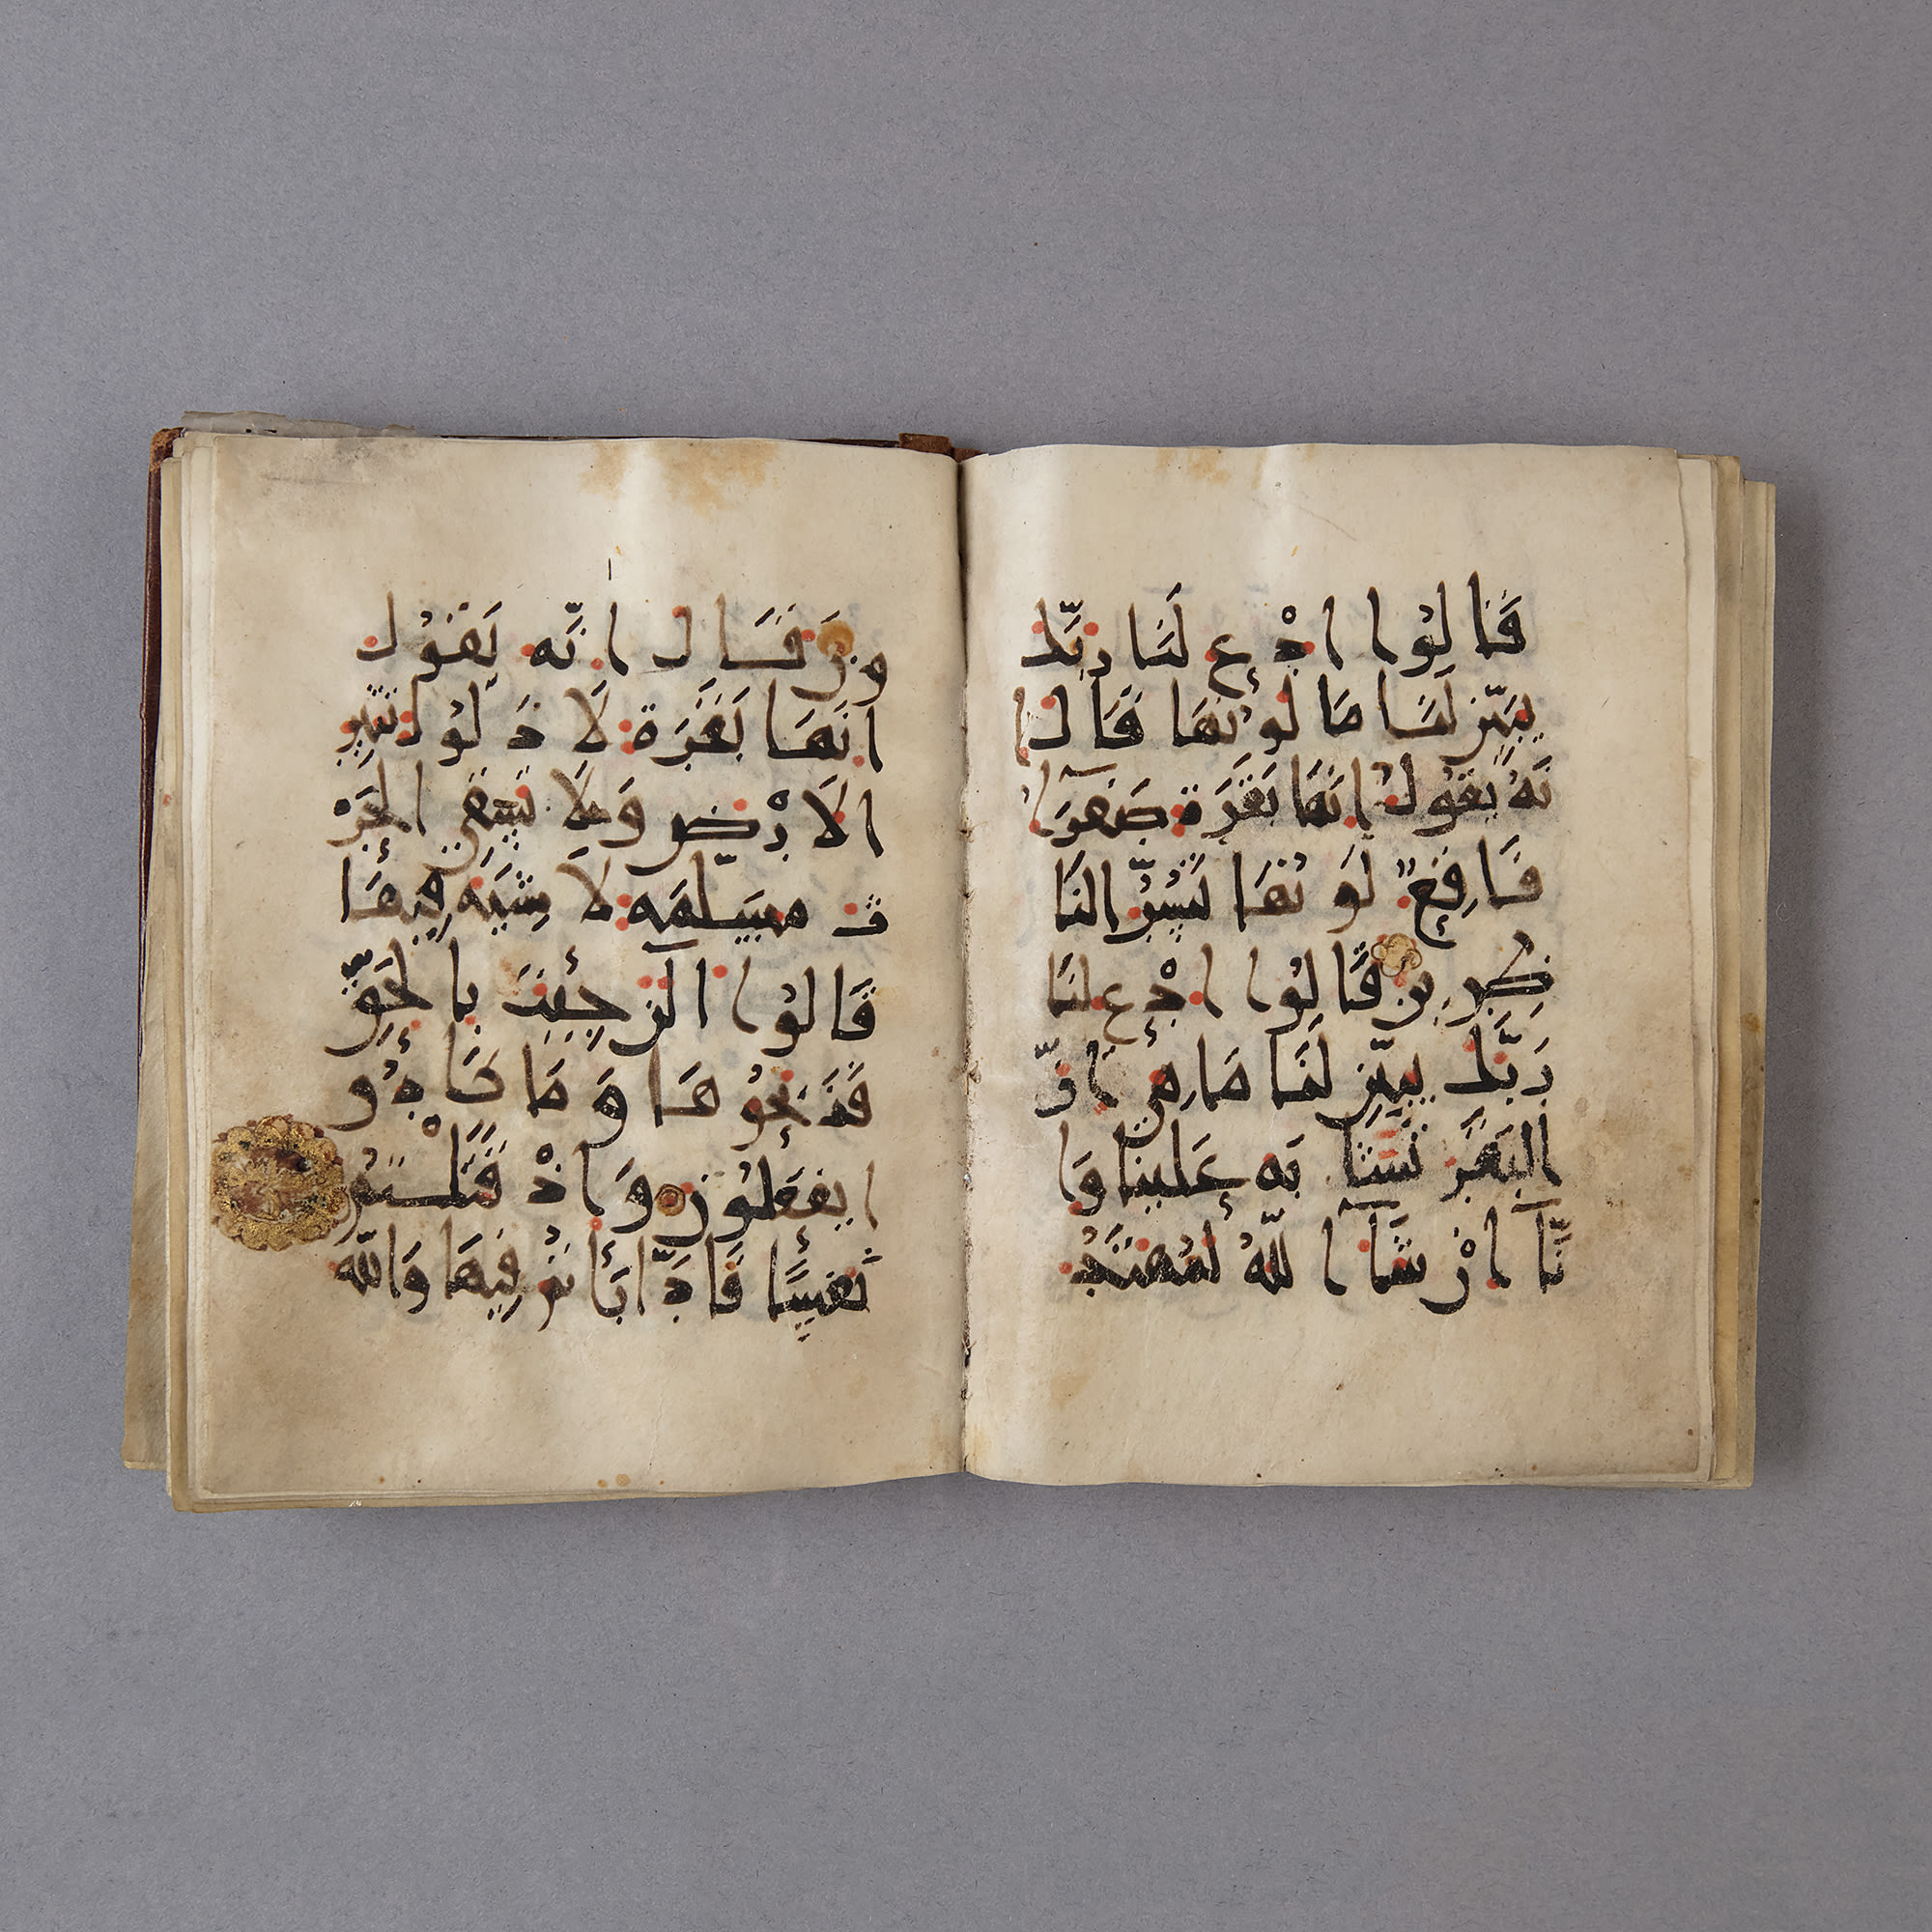 قَالُوا ادْعُ لَنَا رَبَّكَ
يُبَيِّن لَنَا مَا لَوْنُهَا قَالَ ا
نَّهُ يَقُولُ إِنَّهَا بَقَرَةٌ صَفْرَا
فَاقِعٌ لَوْنُهَا تَسُرُّ النَّا
ظِرِينَ قَالُوا ادْعُ لَنَا
رَبَّكَ يُبَيِّن لَنَا مَا هِيَ انَّ
الْبَقَرَ تَشَابَهَ عَلَيْنَا وَا
نَّا انْ شَا اللَّهُ لَمُهْتَدُ
ونَ قَالَ انَّهُ يَقُولُ
انَّهَا بَقَرَةٌ لَا ذَلُولٌ تُثِيرُ
الْأَرْضَ وَلَا تَسْقِي الْحَرْ
ثَ مُسَلَّمَةٌ لَا شِيَةَ فِيهَا
قَالُوا الْنَ جِئْتَ بِالْحَقِّ
فَذَبَحُوهَا وَمَا كَادُو
ا يَفْعَلُونَ وَاذْ قَتَلْتُمْ
نَفْسًا فَادَّارَأْتُمْ فِيهَا وَاللَّهُ